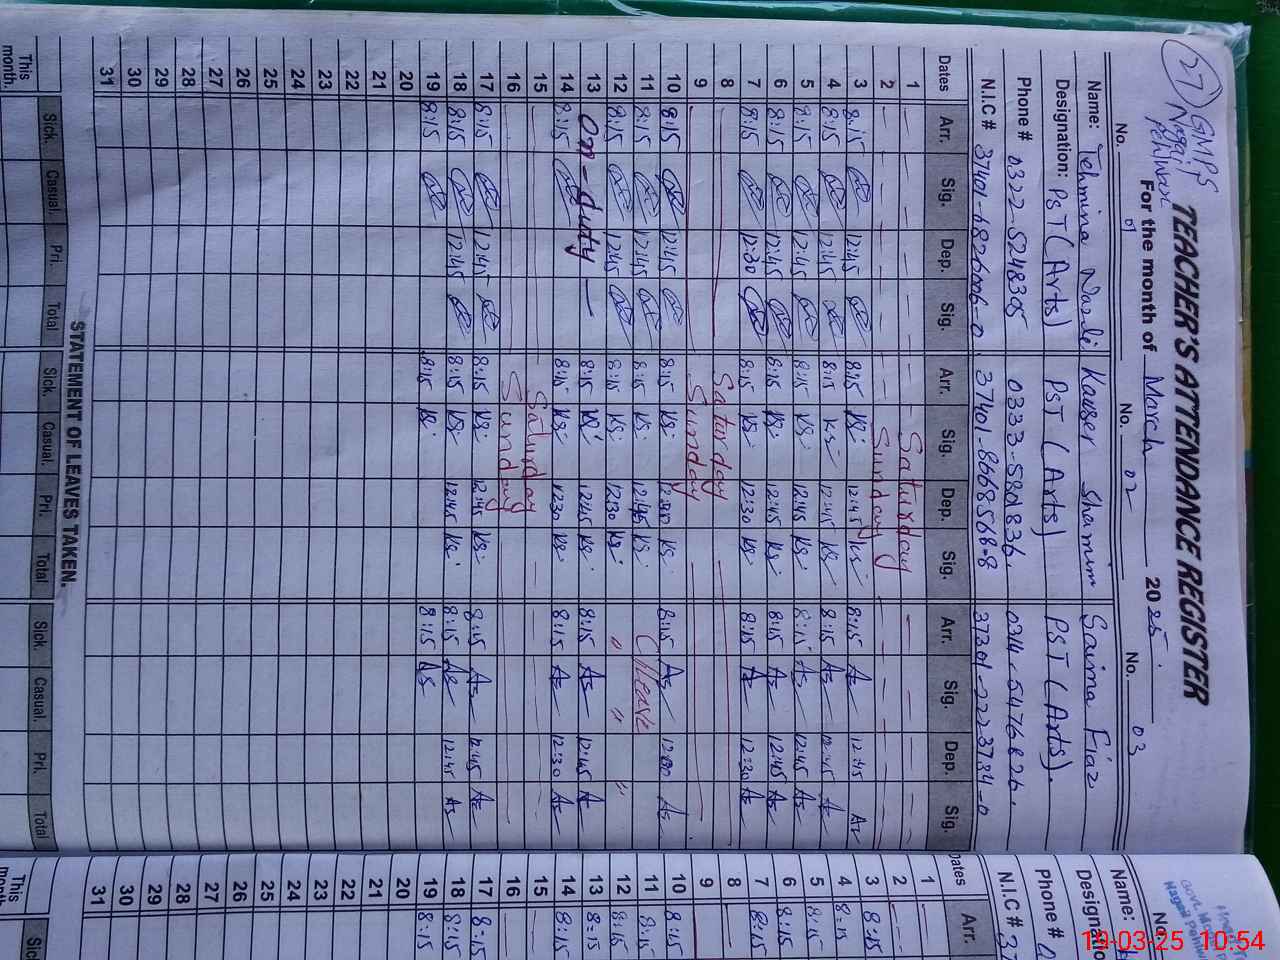 27 GMPS
Nagai
Pehlwan
TEACHER'S ATTENDANCE REGISTER
For the month of March 2025
No. 01 No. 02 No. 03
Name: Tehmina Nazli Kauser Shamim Saima Fiaz
Designation: PST (Arts) PST (Arts) PST (Arts).
Phone # 0322-5248395
N.I.C # 37401-6826006-0 37401-8668568-8 37301-2223784-0
Dates Arr. Sig. Dep. Sig. Arr. Sig. Dep. Sig. Arr. Sig. Dep. Sig.
1 Saturday
2 Sunday
3 8:15 12:45 8:15 KS 12:45 KS 8:15 12:45
4 8:15 12:45 8:15 KS 12:45 KS 8:15 12:45
5 8:15 12:45 8:15 KS 12:45 KS 8:15 12:45
6 8:15 12:45 8:15 KS 12:45 KS 8:15 12:45
7 8:15 12:30 8:15 KS 12:30 KS 8:15 12:30
8 Saturday
9 Sunday
10 8:15 12:45 8:15 KS KS 8:15
11 8:15 12:45 8:15 KS 12:45 KS leave
12 8:15 12:45 8:15 KS 12:30 KS " " "
13 On-duty 8:15 KS 12:45 KS 8:15 12:45
14 8:15 8:15 KS 12:30 KS 8:15 12:30
15 Saturday
16 Sunday
17 8:15 12:45 8:15 KS 12:45 KS 8:15 12:45
18 8:15 12:45 8:15 KS 12:45 KS 8:15 12:45
19 8:15 8:15 KS 8:15
20
21
22
23
24
25
26
27
28
29
30
31
STATEMENT OF LEAVES TAKEN:
Sick. Casual. Pri. Total Sick. Casual. Pri. Total Sick. Casual. Pri. Total
This month.
No.
Name:
Designatio
Phone #
N.I.C # 37
Dates Arr.
1
2
3 8:15
4 8=15
5 8:15
6 8:15
7 8:15
8
9
10 8:15
11 8:15
12 8:15
13 8=15
14 8:15
15
16
17 8=15
18 8:15
19 8:15
20
21
22
23
24
25
26
27
28
29
30
31
This month
Sic
19-03-25 10:54